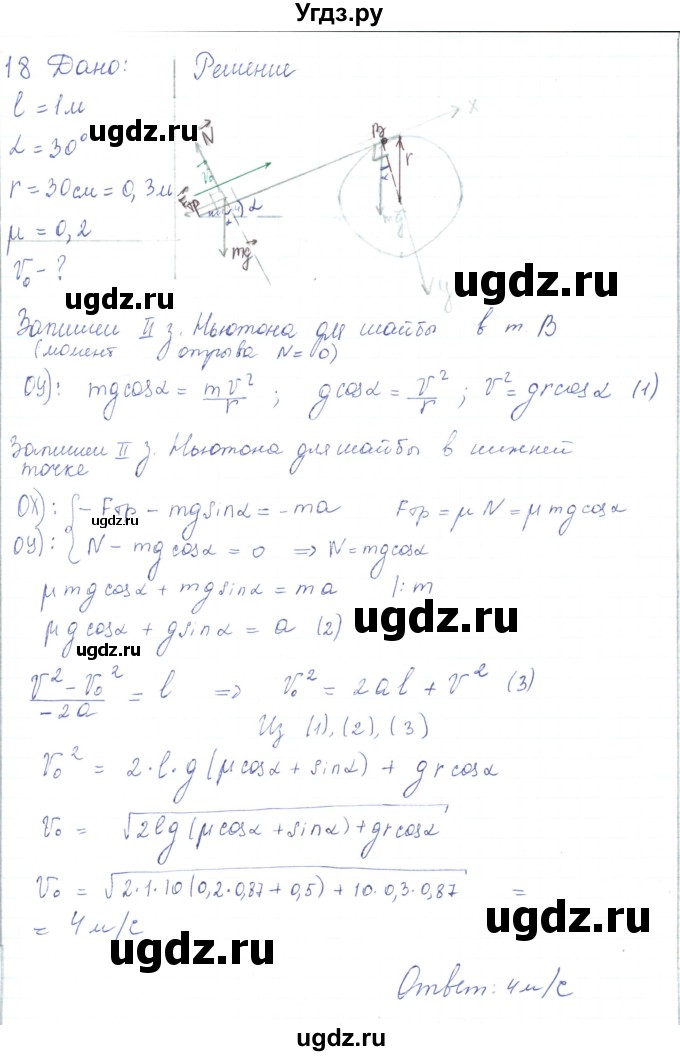 Угдз.ру
18 Дано:
Решение
l = 1 м
α = 30°
r = 30 см = 0,3 м
μ = 0,2
V₀ - ?
N
V₀
Fтр
α
mg
B
r
α
mg
x
y
ugdz.ru
ugdz.ru
ugdz.ru
ugdz.ru
Запишем II з. Ньютона для шайбы в т B
(момент отрыва N = 0)
OY): mg cosα = mV²/r ; g cosα = V²/r ; V² = gr cosα (1)
ugdz.ru
Запишем II з. Ньютона для шайбы в нижней
точке
OX): { - Fтр - mg sinα = - ma Fтр = μN = μmg cosα
OY): { N - mg cosα = 0 ⇒ N = mg cosα
ugdz.ru
μmg cosα + mg sinα = ma |: m
μg cosα + g sinα = a (2)
ugdz.ru
ugdz.ru
(V² - V₀²)/(-2a) = l ⇒ V₀² = 2al + V² (3)
Из (1), (2), (3)
ugdz.ru
V₀² = 2·l·g (μcosα + sinα) + gr cosα
V₀ = √(2lg (μcosα + sinα) + gr cosα)
ugdz.ru
V₀ = √(2·1·10 (0,2·0,87 + 0,5) + 10·0,3·0,87) =
= 4 м/с
ugdz.ru
ugdz.ru
Ответ: 4 м/с
ugdz.ru